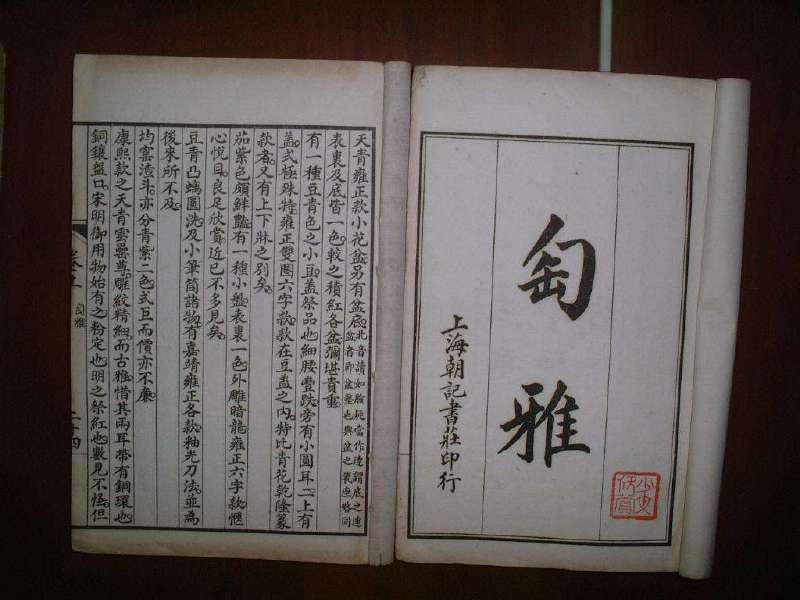 匋雅
上海朝記書莊印行
天青雍正款小花盆另有盆底
表裏及底皆一色較之積紅各盆彌堪貴重
有一種豆青色之小豆蓋祭品也細腰豐跌旁有小圓耳二上有
蓋式極殊特雍正雙圈六字款款在豆蓋之內特比青花乾隆篆
款者又有上下牀之別矣
茄紫色頗鮮豔有一種小盤表裏一色外雕暗龍雍正六字款愜
心悅目良足欣賞近已不多見矣
豆青凸螭圓洗及小筆筒諸物有嘉靖雍正各款釉光刀法並為
後來所不及
均窰渣斗亦分青紫二色式巨而價亦不廉
康熙款之天青雲罍尊雕紋精細而古雅惜其兩耳帶有銅環也
銅鑲盤口宋明御用物始有之粉定也明之祭紅也數見不怪但
匋雅
二十四